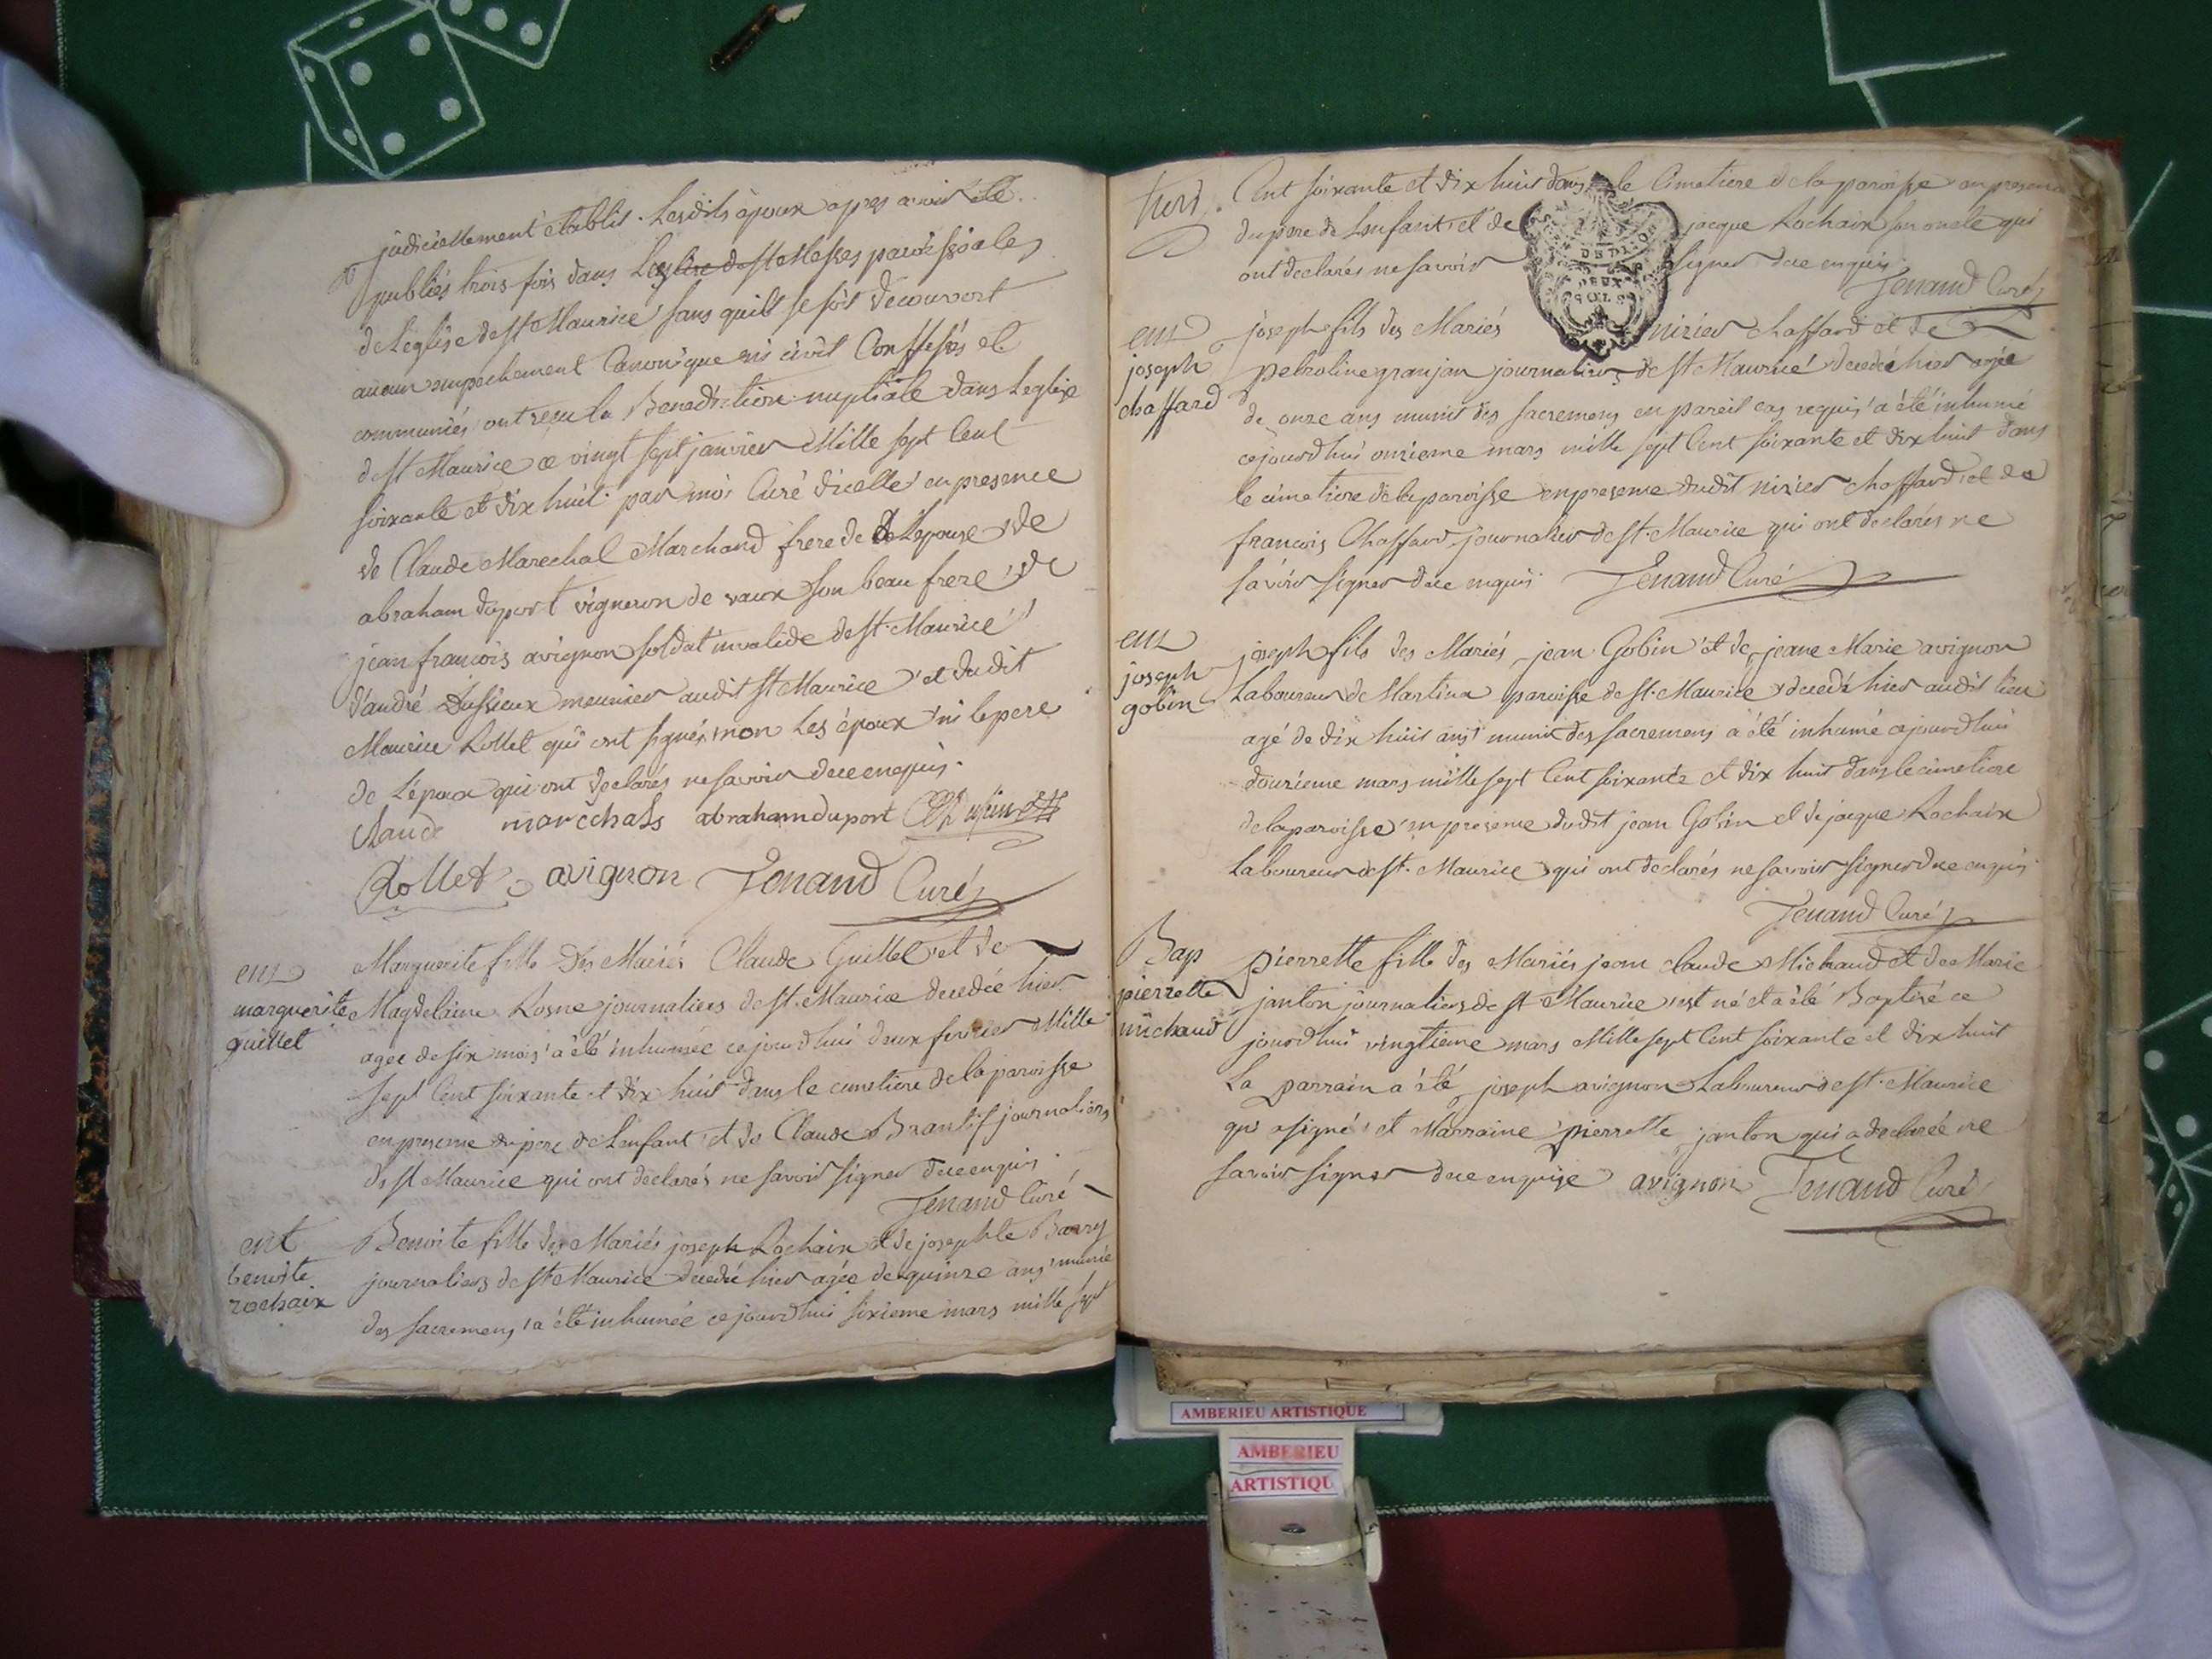 judiciellement établis. Lesdits époux apres avoir été
publiés trois fois dans Leglise de st Messes paroissiales
de Léglise de st Maurice sans quilt se soit decouvert
aucun empechement Canonique ni civil Confessés et
communiés ont reçu la Benediction nuptiale dans Leglise
de st Maurice ce vingt sept janvier Mille sept Cent
soixante et dix huit par moi Curé d'icelle en presence
de Claude Marechal Marchand frere de Lepouse de
abraham duport vigneron de vaux son beau frere de
jean francois avignon soldat invalide de st Maurice
d'andré Dussieux meunier audit st Maurice et dudit
Maurice Rollet qui ont signés non Les époux ni le pere
de L'epoux qui ont declarés ne savoir de ce enquis.
Claude marechals abraham duport
Rollet avignon Tenand Curé
ent
marguerite
guillet
Marguerite fille Des Mariés Claude Guillet et de
Magdelaine Rosne journaliers de st. Maurice decedée hier
agee de six mois a été inhumée ce jourdhui deux fevrier Mille
sept Cent soixante et dix huit dans le cimetiere de la paroisse
en presence du pere de Lenfant et de Claude journaliers
de st Maurice qui ont declarés ne savoir signer de ce enquis.
Tenand Curé
ent
benoite
rochaix
Benoite fille des Mariés joseph Rochaix et de josephte Barry
journaliers de st Maurice decedée hier agée de quinze ans munie
des sacremens a été inhumée ce jourdhui sixieme mars mille sept
Cent soixante et dix huit dans le Cimetiere de la paroisse en presence
du pere de Lenfant et de jacque Rochaix son oncle qui
ont declarés ne savoir signer de ce enquis
Tenand Curé
DEUX
SOLS
ent
joseph
chaffard
joseph fils des Mariés nizier chaffard et de
petroline granjan journaliers de st Maurice decedé hier agée
de onze ans munit des sacremens en pareil cas requis a été inhumé
cejourdhui onzieme mars mille sept Cent soixante et dix huit dans
le cimetiere de la paroisse en presence dudit nizier chaffard et de
francois Chaffard journalier de st. Maurice qui ont declarés ne
savoir signer de ce enquis. Tenand Curé
ent
joseph
gobin
joseph fils des Mariés jean Gobin et de jeane Marie avignon
Laboureur de Martinaz paroisse de st. Maurice decedé hier audit lieu
agé de dix huit ans munit des sacremens a été inhumé cejourdhui
douzieme mars mille sept Cent soixante et dix huit dans le cimetiere
de la paroisse en presence dudit jean Gobin et de jacque Rochaix
Laboureur de st. Maurice qui ont declarés ne savoir signer de ce enquis
Tenand Curé
Bap
pierrette
michaud
pierrette fille des Mariés jean claude Michaud et de Marie
janton journaliers de st Maurice est né et a été Baptisé ce
jourdhui vingtieme mars Mille sept Cent soixante et dix huit
La parrain a été joseph avignon Laboureur de st. Maurice
qui a signé et Marraine pierrette janton qui a declarée ne
savoir signer de ce enquise avignon Tenand Curé
AMBERIEU ARTISTIQUE
AMBERIEU
ARTISTIQU